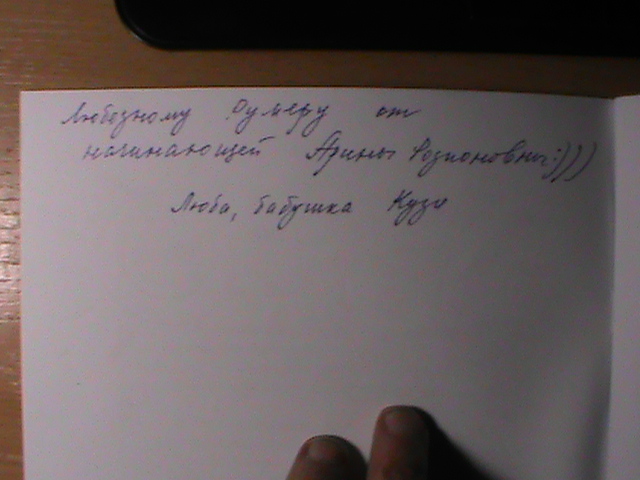 Любезному Румеру от
начинающей Арины Родионовны:))))
Люба, бабушка Кузи